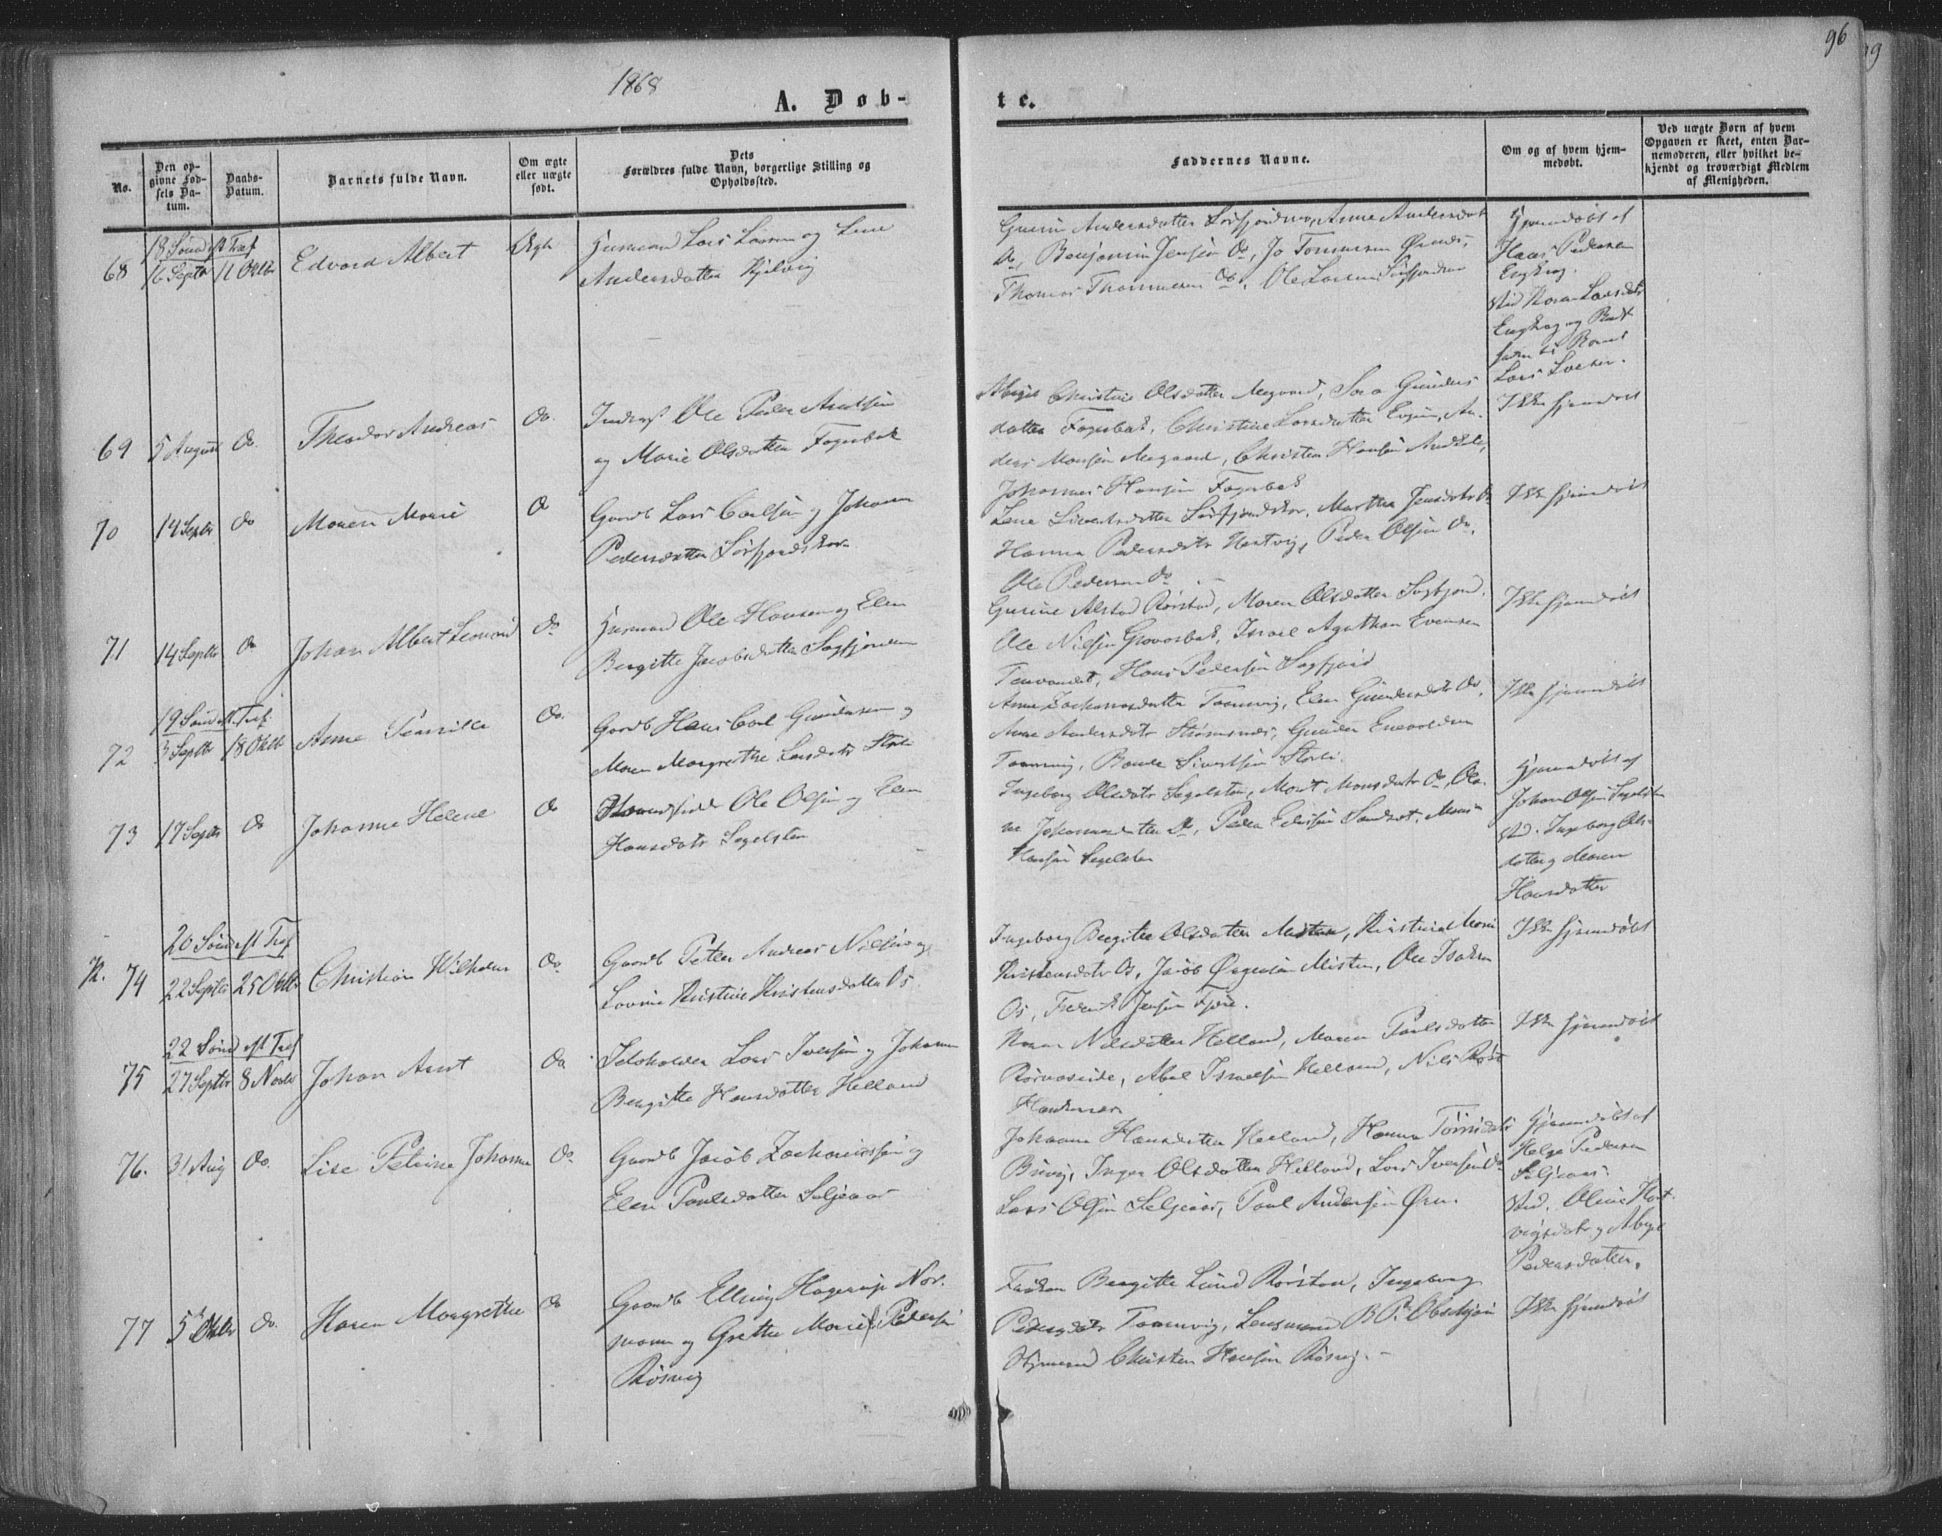 96
99
1868
A. Døb-
te.
No.
Den opgivne Fødsels Datum.
Daabs-Datum.
Barnets fulde Navn.
Om ægte eller uægte født.
Dets Forældres fulde Navn, borgerlige Stilling og Opholdssted.
Faddernes Navne.
Om og af hvem hjemmedøbt.
Ved uægte Børn af hvem Opgaven er skeet, enten Barnemoderen, eller hvilket bekjendt og troværdigt Medlem af Menigheden.
18 Sønd eft Tref
68 16 Septbr 11 Oktbr Edvard Albert Ægte Husmand Lars Larsen og Lene
Andersdatter
Andersdatter Sørfjordmo, Anne Andersdat
Do, Benjamin Jensen Do, Jo Tommesen Ørnes,
Thomas Thommesen Do, Ole Larsen Sørfjordmo
Hjemmedøbt af
Hans Pedersen
Engkrog.
Lars
69 5 August do. Theodor Andreas do. Inderst Ole Peder Arntsen
og Marie Olsdatter Fagerbak
Christine Olsdatter Aagaard, Sara Gunders
datter Fagerbak, Christine Larsdatter
ders Monsen Aagaard, Christen Hansen
Johannes Hansen Fagerbak
Ikke hjemdøbt
70 14 Septbr do Maren Marie do Gaardb Lars Carlsen og Johanna
Pedersdatter Sørfjordskar
Lene Sivertsdatter Sørfjordskar, Martha Jensdatr Do
Hanna Pedersdatr Hestvig, Peder Olsen Do,
Ole Pedersen Do
Ikke hjemdøbt
71 14 Septbr do Johan Albert Leonard do Husmand Ole Hansen og Elen
Bergitte Jacobsdatter Sagfjorden
Gurine Alstad Rørstad, Maren Olsdatter Sagfjord,
Ole Nilsen Grovasbak, Israel Agathon Evensen
Tenvandet, Hans Pedersen Sagfjord
Ikke hjemdøbt
19 Sønd eft Tref
72 3 Septbr 18 Oktb Anne Pernille do. Gaardb Hans Carl Gundersen og
Maren Margrethe Larsdatr Storli
Anne Zachariasdatter Tømmervig, Elen Gundersdatr Do,
Anne Andersdatr Strømsnes, Gunder Enevoldsen
Tømmervig, Bonde Sivertsen Storli.
Ikke hjemdøbt
73 17 Septbr do Johanna Helene do Ole Olsen og Elen
Hansdatr Sagelsten
Ingeborg Olsdatr Sagelsten, Marit Monsdatr Do, Ole
ne Johannesdatter Do, Peder Edisen Sandset, Mons
Hansen Sagelsten
Hjemmedøbt af
Johan Olsen Sagelsten
vid. Ingeborg Ols-
datter og Maren
Hansdatter
20 Sønd eft Tref
K. 74 22 Septbr 25 Oktbr Christian Wilhelm do. Gaardb Petter Andreas Nilsen og
Lovise Kristine Kristensdatter Os
Ingeborg Bergitte Olsdatter Misten, Kristina Maria
Kristensdatr Os, Jacob Ørgersen Misten, Ole Isaksen
Os, Fredrik Jensen Fjære.
Ikke hjemdøbt
22 Sønd eft Tref
75 27 Septbr 8 Novbr Johan Arnt do Selvholden Lars Iversen og Johanna
Bergitte Hansdatter Helland
Nilsdatter Helland, Maren Paulsdatter
Rørvaseide, Abel Israelsen Helland, Nils Røst
Ikke hjemdøbt
76. 31 Aug do. Lise Petrine Johanna do. Gaardb Jacob Zachariassen og
Elen Paulsdatter Seljeaas
Johanna Hansdatter Helland, Hanna Tørrisdatr
Buvig, Inger Olsdatter Helland, Lars Iversen Do
Lars Olsen Seljeaas, Paul Andersen Ørn.
Hjemmedøbt af
Helge Pedersen
Seljeaas.
vid. Oline Hart-
vigsdatr og
Pedersdatter.
77 5te Oktbr do. Haren Margrethe do Gaardb Elling Hagerup Nor-
mann og Grethe Marie f. Pedersen
Røsvig
Frøken Bergitte Lund Rørstad, Ingeborg
Pedersdatr Tømmervig, Lensmand
Styrmand Christen Hansen Røsvig.
Ikke hjemdøbt